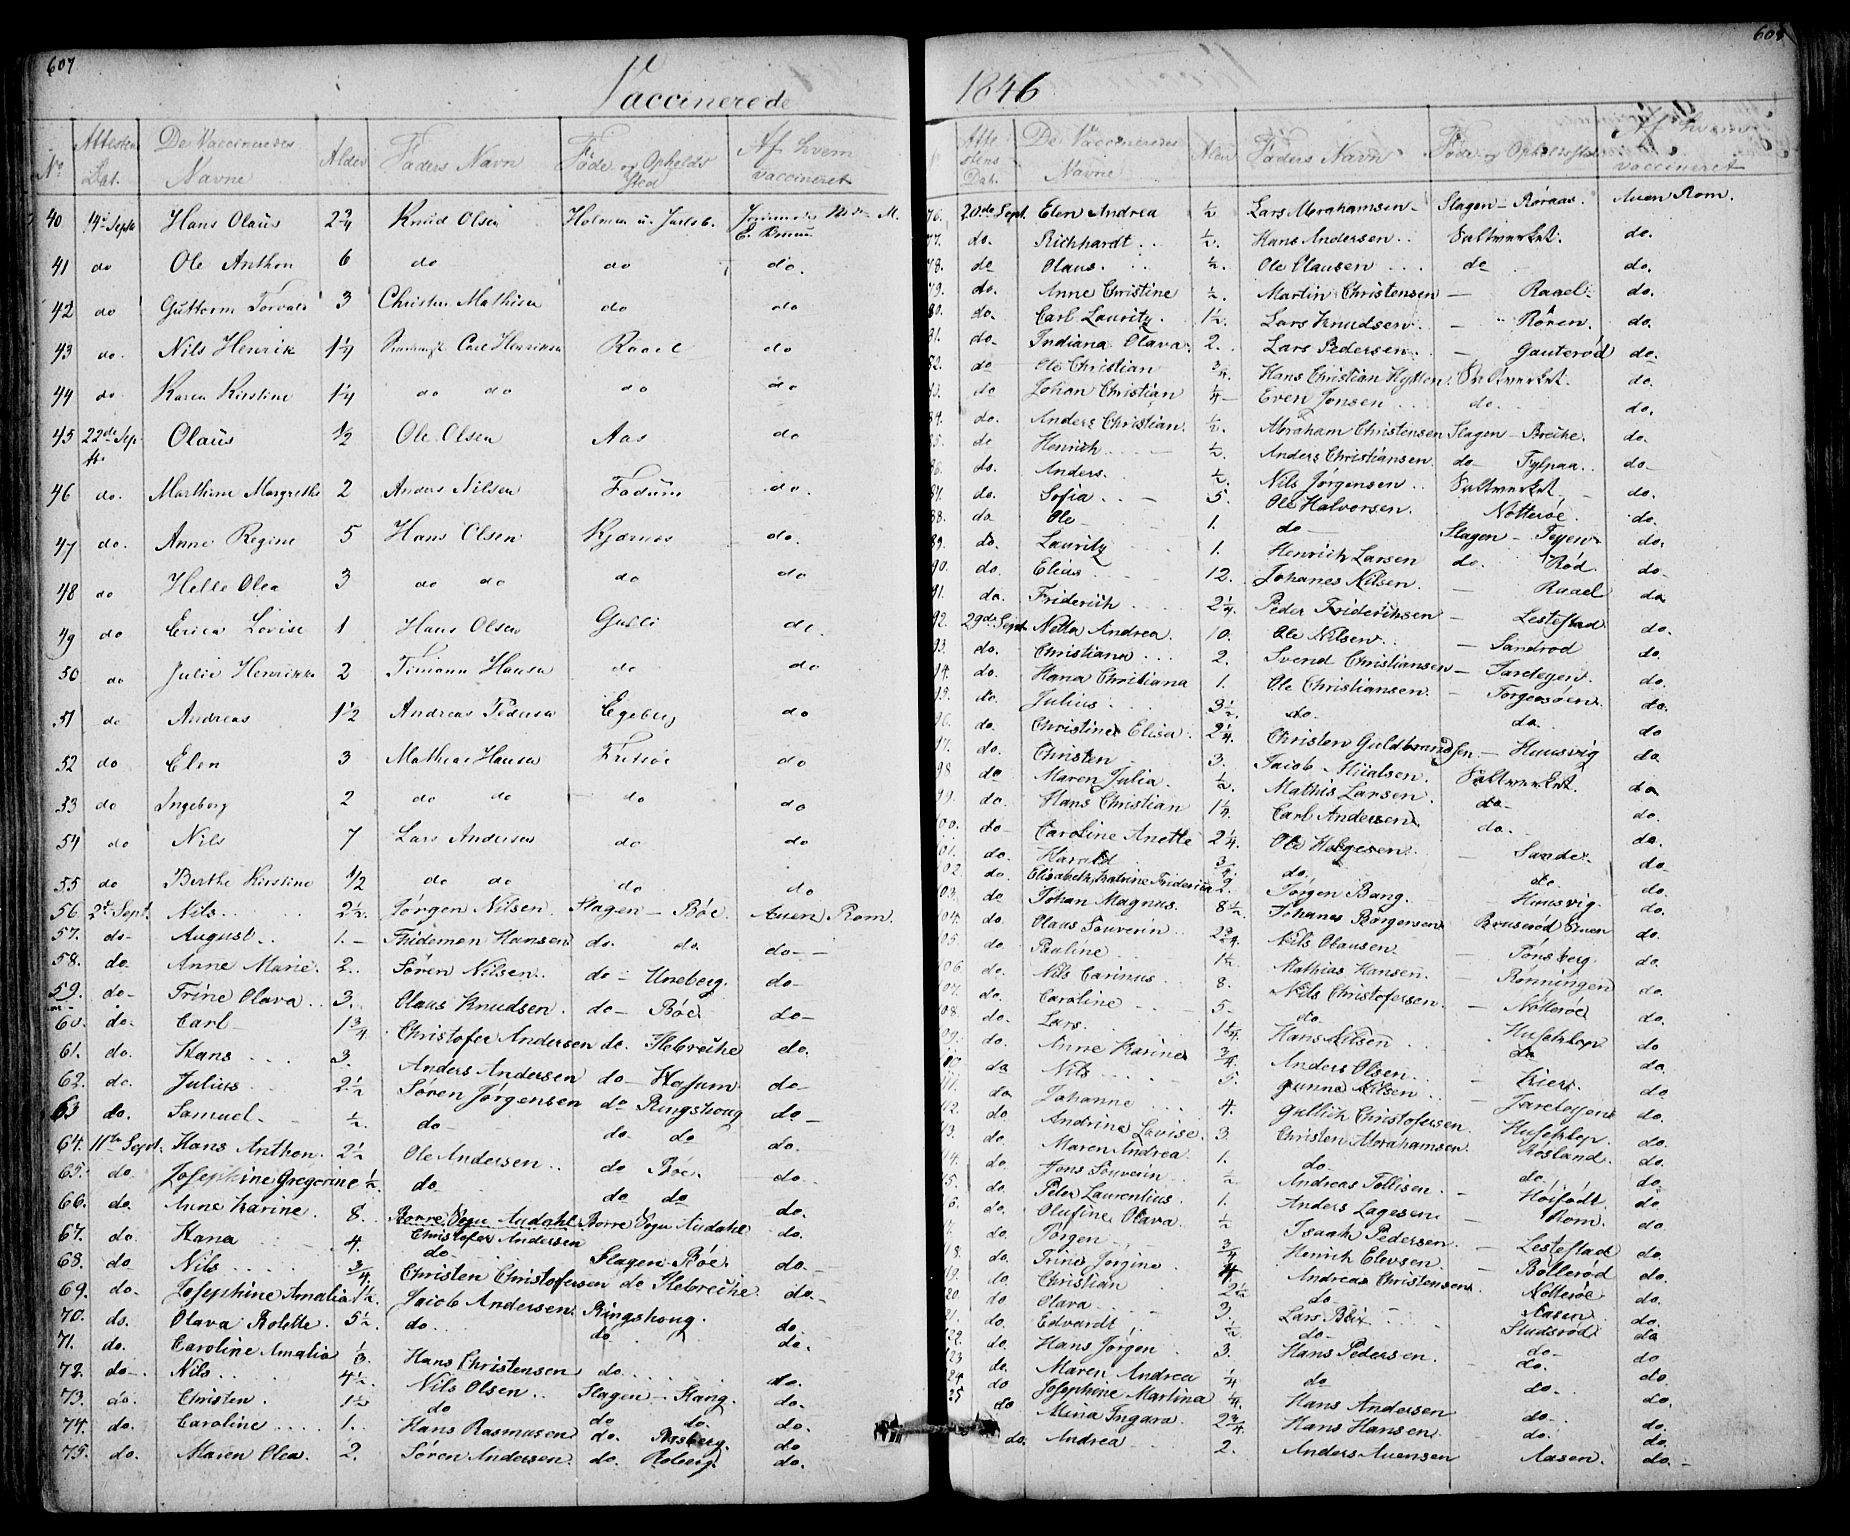 607
Vaccinerede
No | Attestens Dat. | De Vaccineredes Navne | Alder | Faders Navn | Føde og Opholds Sted | Af hvem vaccineret
40 | 14de Septr | Hans Olaus | 2 3/4 | Knud Olsen | Holmen u. Jarlsb. | M. E. Bruun
41 | do | Ole Anthon | 6 | do | do | do.
42 | do | Guttorm Torvald | 3 | Christen Mathisen | do | do
43 | do. | Nils Henrik | 1 1/4 | Carl Henriksen | Raael | do
44 | do | Karen Kirstine | 1/4 | do do | do | do
45 | 22de Sep- tr. | Olaus | 1/2 | Ole Olsen | Aas | do
46 | do. | Marthine Margrethe | 2 | Anders Nilsen | Fadum | do.
47 | do. | Anne Regine | 5 | Hans Olsen | Kjærnes | do.
48 | do | Helle Olea | 3 | do do | do | do
49 | do | Erica Lovise | 1 | Hans Olsen | Gulli | do.
50 | do | Julie Henrikke | 2 | Timann Hansen | do | do
51 | do | Andreas | 1 1/2 | Andreas Pedersen | Egeberg | do
52 | do | Elen | 3 | Mathias Hansen | Fritsøe | do
53 | do | Ingeborg | 2 | do do | do | do
54 | do | Nils | 7 | Lars Andersen | do | do
55 | do | Berthe Kirstine | 1/2 | do do | do | do
56. | 2de Sept. | Nils | 2 1/2. | Jørgen Nilsen. | Slagen - Bøe. | Auen Rom.
57. | do- | August. | 1. | Thidemon Hansen | do. do. | do-
58. | do. | Anne Marie. | 2. | Sören Nilsen. | do - Uneberg. | do-
59. | do- | Trine Olava | 3. | Olaus Knudsen. | do - Bøe | do-
60. | do. | Carl | 1 3/4. | Christofer Andersen | do. Slebreche | do.
61. | do. | Hans | 3. | Anders Andersen | do - Hasum. | do-
62. | do. | Julius | 2 1/2 | Søren Jørgensen | do Ringshoug | do-
63 | do. | Samuel- | 1/2. | do- | do do | do.
64. | 11te Sept. | Hans Anthon. | 2 1/2 | Ole Andersen | do Bøe. | do-
65. | do. | Josephine Gregorine | 1/2. | do- | do do | do.
66. | do. | Anne Karine. | 8. | Borre Sogn Audahl Christofer Andersen | Borre Sogn Audahl | do.
67. | do. | Hana | 4. | do- | Slagen - Bøe. | do.-
68. | do. | Nils | 3/4. | Christen Christofersen | do Slebreche | do-
69. | do. | Josephine Amalia | 1 1/2. | Jacob Andersen. | Ringshoug. | do.
70. | do. | Olava Bolette. | 5 1/2. | do. | do. | do.
71. | do. | Caroline Amalia | 1/3. | Hans Christensen | do. | do.
72. | do-. | Nils. | 4 1/2. | Nils Olsen | Slagen - Stang. | do.
73. | do. | Christen. | 1 1/2 | do | do do. | do.
74. | do. | Caroline | 1. | Hans Rasmusen | do. Roberg. | do
75. | do. | Maren Olea. | 2. | Søren Andersen. | do. Roberg. | do.
1846
Attestens Dat. | De Vaccineredes Navne | Alder | Faders Navn | Føde og Opholdssted | Af hvem vaccineret
76. | 20de Sept. | Elen Andrea | 1/2 | Lars Abrahamsen | Slagen - Røraas. | Auen Rom.
77. | do. | Richhardt | 1/2. | Hans Andersen | Saltverket. | do.
78. | do | Olaus. | 1/2. | Ole Clausen | do | do.
79. | do. | Anne Christine | 1/2. | Martin Christensen | Raael | do.
80. | do. | Carl Lauritz. | 1 1/2. | Lars Knudsen. | Røren. | do.
81. | do- | Indiana Olava. | 2. | Lars Pedersen. | Gauterød | do.
82. | do | Ole Christian | 3/4. | Hans Christian | Saltverket. | do.
83. | do | Johan Christian | 4- | Even Jonsen | do. | do.
84. | do. | Anders Christian. | 1/2. | Abraham Christensen | Slagen - Breche. | do.
85. | do | Henrich | 1/2. | Anders Christiansen. | do - Fylpaa. | do-
86. | do. | Anders. | 1/2. | Nils Jørgensen | Saltverket. | do.
87. | do. | Sofia | 5. | Ole Halvorsen. | Nötterøe. | do.
88. | do | Ole | 1. | do- | Slagen - Teyen | do.
89. | do. | Lauritz | 1. | Henrich Larsen | do. Rød. | do-
90. | do. | Elias | 12. | Johanes Nilsen. | Raael | do
91. | do. | Friderich | 2 1/4. | Peder Friderichsen | Lestestad | do.
92. | 29de Sept. | Netta Andrea. | 10. | Ole Nilsen. | Sandrød | do.
93. | do. | Christiana | 2. | Svend Christiansen | Taretegen. | do.
94. | do. | Hana Christiana | 1. | Ole Christiansen. | Torgersøen | do.
95. | do. | Julius | 3 1/2. | do. | do. | do
96. | do. | Christine Elisa. | 2 1/4. | Christen Guldbrandsen | Huusvig | do.
97. | do. | Christen | 3. | Jacob Miialsen. | Saltverket. | do
98 | do | Maren Julia | 1/2. | Mathis Larsen. | do- | do.
99. | do. | Hans Christian | 1 1/4. | Carl Andersen | do. | do.
100. | do- | Caroline Anette | 2 1/4. | Ole Helgesen. | Sande. | do-
101. | do. | Harald | 3/4. | do. | do. | do.
102. | do. | Elisabeth Katrine Friderica | 2. | Jørgen Bang. | Huusvig. | do.
103. | do | Johan Magnus. | 8 1/2. | Johanes Borgersen | Bruserød Enen | do.
104. | do. | Olaus Souverin. | 2 3/4. | Nils Olausen. | Tønsberg. | do.
105. | do | Pauline | 1 1/2. | Mathias Hansen. | Rønningen | do.
106. | do. | Nils Carinus. | 8. | Nils Christofersen. | Nötterøe | do.
107. | do. | Caroline | 5. | do | Husehlep. | do
108. | do. | Lars. | 1 3/4. | Hans Nilsen | do | do
109. | do. | Anne Karine | 3/4. | Anders Olsen. | Kier. | do.
110 | do | Nils | 5. | Gunne Nilsen | Taretegen | do.
111. | do | Johanne | 4. | Gullich Christofersen. | Husehlep. | do.
112. | do | Andrine Lovise. | 3. | Christen Abrahamsen. | Røsland. | do.
113. | do. | Maren Andrea | 1. | do- | do. | do.
114. | do. | Jens Souverin | 1/2. | Andreas Tollisen. | Høifødt. | do.
115. | do. | Peter Laurentius. | 1. | Anders Lagesen | Rom. | do.
116. | do. | Olufine Olava. | 1/2 | Isaach Pedersen. | Lestestad | do.
117. | do. | Jørgen | 3/4 | Henrich Elevsen. | Bøllerød | do.
118. | do. | Trine Jørgine. | 4. | Andreas Christensen. | Nötterøe | do.
119. | do. | Christian | 2 1/2 | do- | Aasen | do
120. | do | Olava | 3. | Lars Blix | Studsrød | do
121. | do. | Edvardt | 1/2 | do- | do- | do
122. | do. | Hans Jørgen | 3. | Hans Pedersen. | do. | do.
123 | do. | Maren Andrea | 1/4 | do | do. | do.
124. | do | Josephine Martina | 1/4. | Hans Andersen | do-. | do.
125 | do | Mina Ingara. | 2 3/4 | Hans Hansen | do. | do.
do. | Andrea | 2. | Anders Auensen | Aasen. | do.-